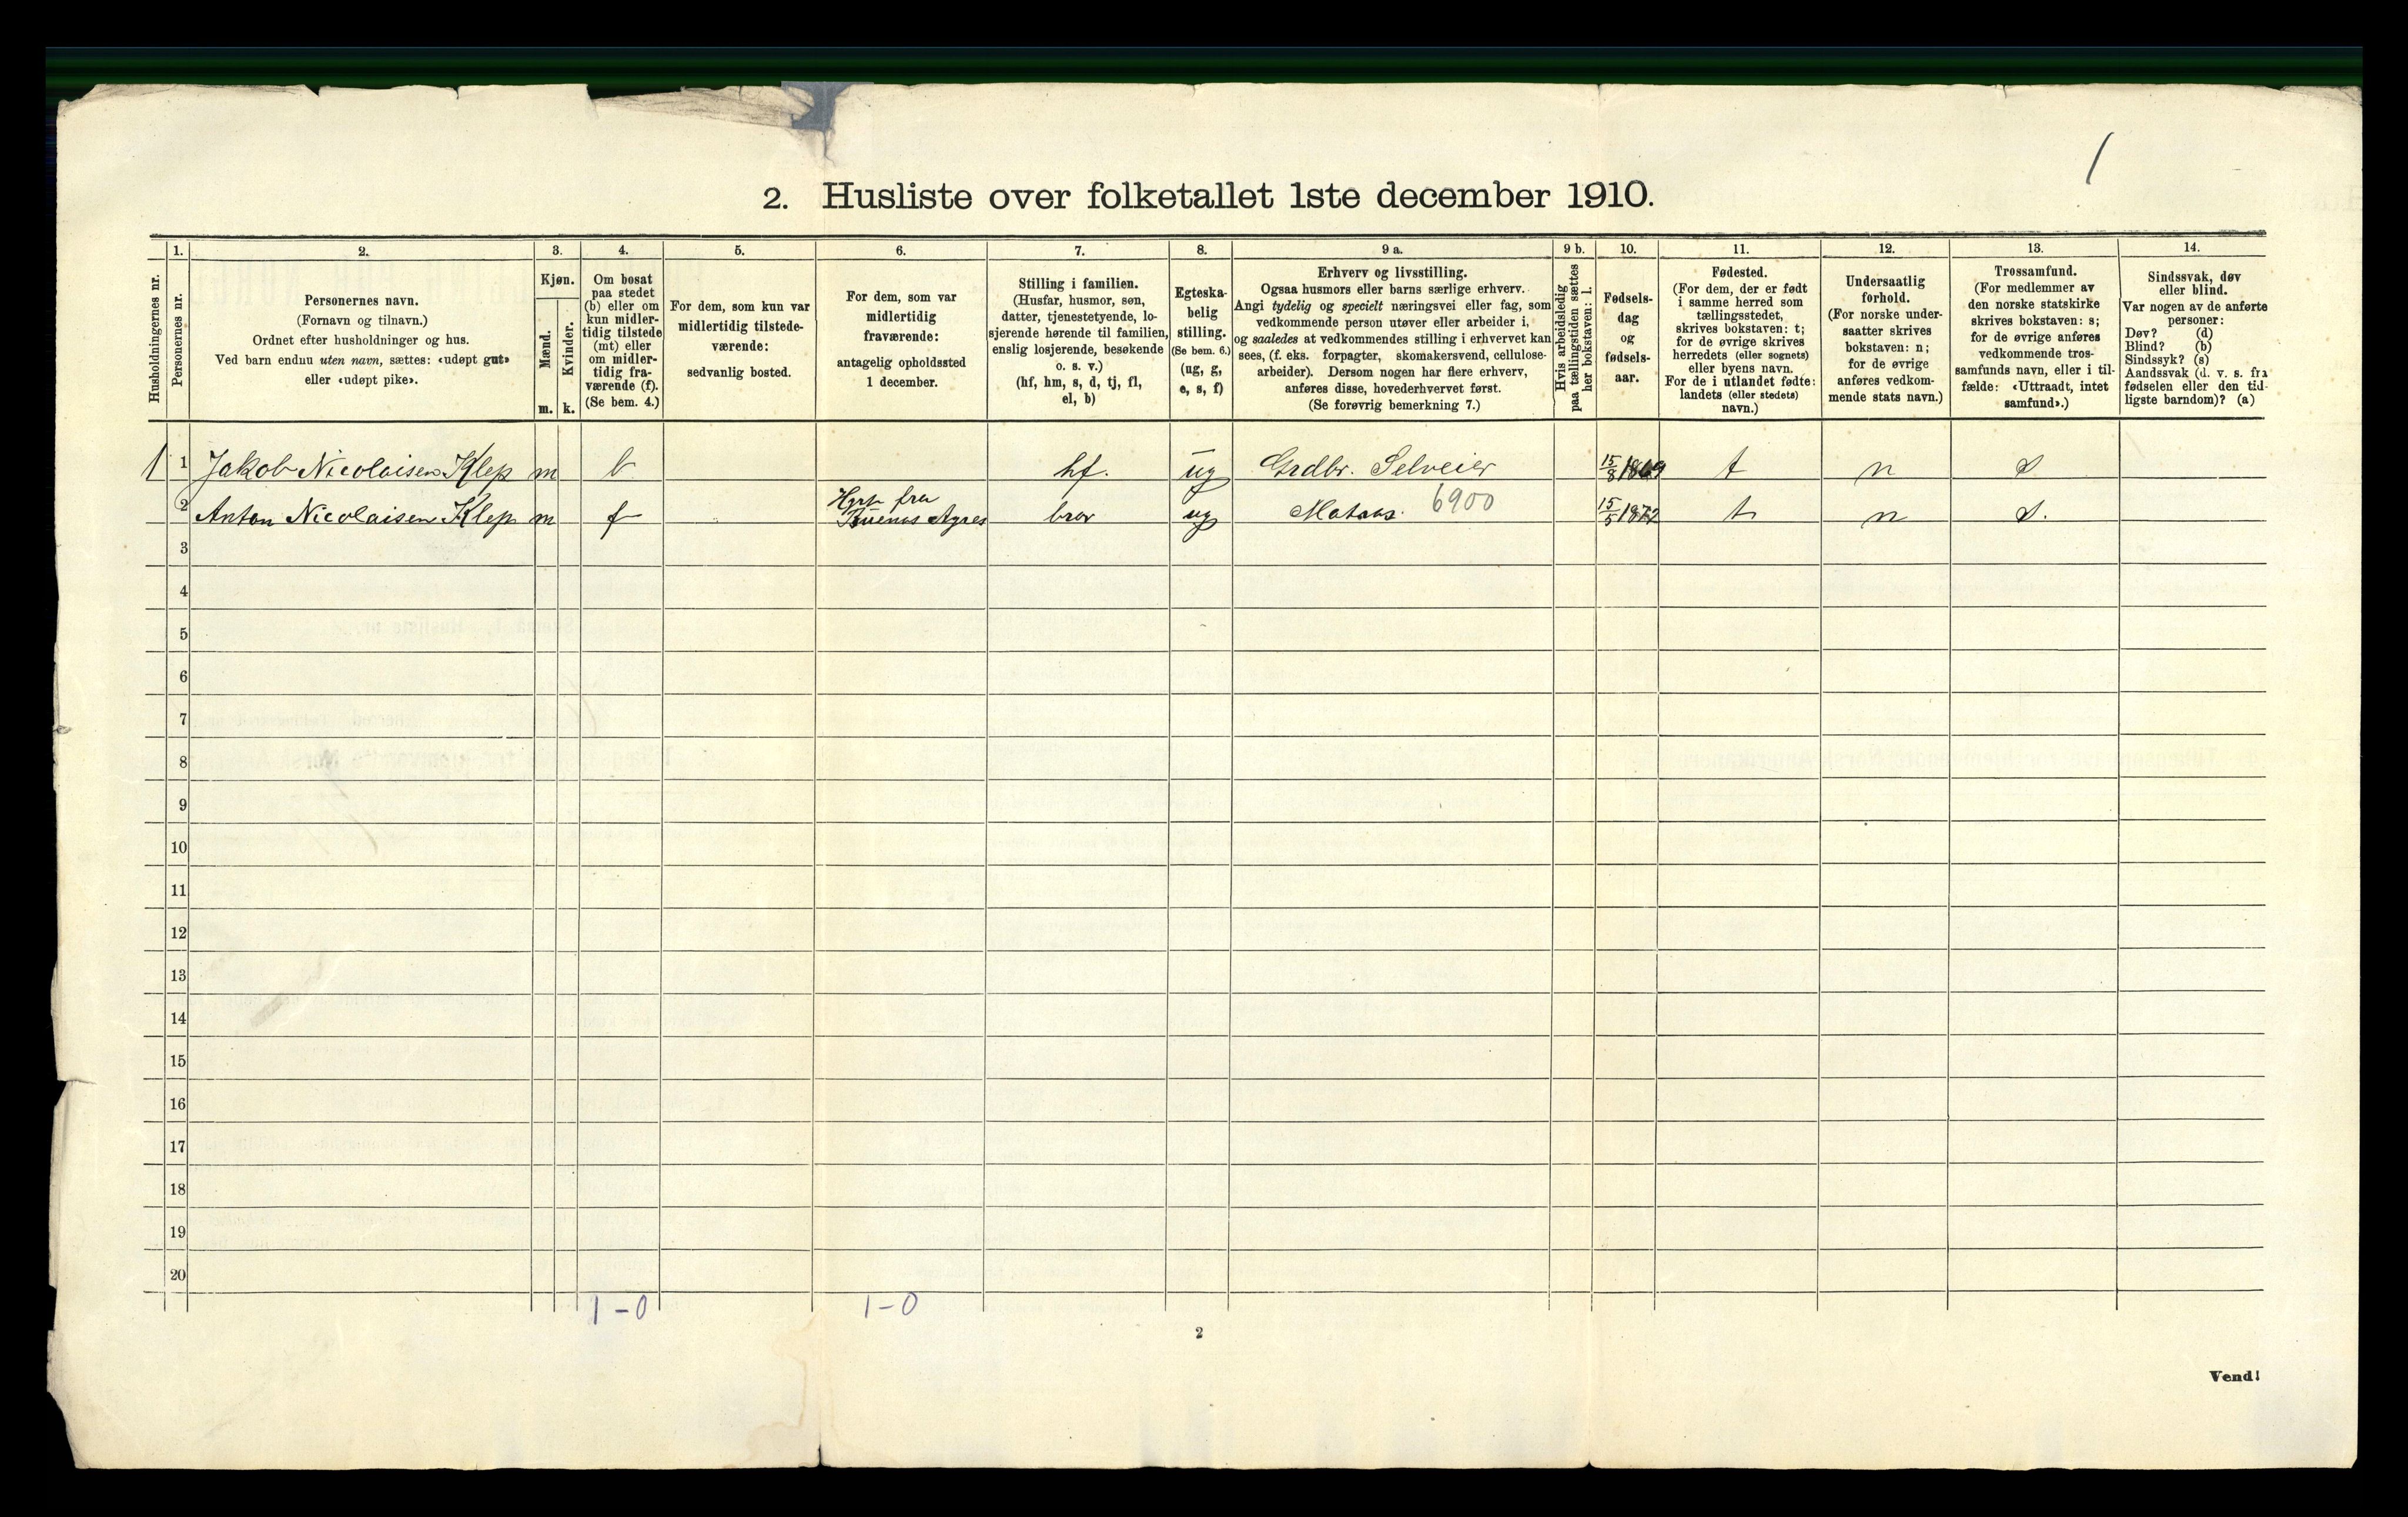 1
2. Husliste over folketallet 1ste december 1910.
Husholdningernes nr.
1.
Personernes nr.
2.
Personernes navn.
(Fornavn og tilnavn.)
Ordnet efter husholdninger og hus.
Ved barn endnu uten navn, sættes: «udøpt gut»
eller «udøpt pike».
3.
Kjøn.
Mænd.
m.
Kvinder.
k.
4.
Om bosat
paa stedet
(b) eller om
kun midler-
tidig tilstede
(mt) eller
om midler-
tidig fra-
værende (f).
(Se bem. 4.)
5.
For dem, som kun var
midlertidig tilstede-
værende:
sedvanlig bosted.
6.
For dem, som var
midlertidig
fraværende:
antagelig opholdssted
1 december.
7.
Stilling i familien.
(Husfar, husmor, søn,
datter, tjenestetyende, lo-
sjerende hørende til familien,
enslig losjerende, besøkende
o. s. v.)
(hf, hm, s, d, tj, fl,
el, b)
8.
Egteska-
belig
stilling.
(Se bem. 6.)
(ug, g,
e, s, f)
9 a.
Erhverv og livsstilling.
Ogsaa husmors eller barns særlige erhverv.
Angi tydelig og specielt næringsvei eller fag, som
vedkommende person utøver eller arbeider i,
og saaledes at vedkommendes stilling i erhvervet kan
sees, (f. eks. forpagter, skomakersvend, cellulose-
arbeider). Dersom nogen har flere erhverv,
anføres disse, hovederhvervet først.
(Se forøvrig bemerkning 7.)
9 b.
Hvis arbeidsledig
paa tællingstiden sættes
her bokstaven: l.
10.
Fødsels-
dag
og
fødsels-
aar.
11.
Fødested.
(For dem, der er født
i samme herred som
tællingsstedet,
skrives bokstaven: t;
for de øvrige skrives
herredets (eller sognets)
eller byens navn.
For de i utlandet fødte:
landets (eller stedets)
navn.)
12.
Undersaatlig
forhold.
(For norske under-
saatter skrives
bokstaven: n;
for de øvrige
anføres vedkom-
mende stats navn.)
13.
Trossamfund.
(For medlemmer av
den norske statskirke
skrives bokstaven: s;
for de øvrige anføres
vedkommende tros-
samfunds navn, eller i til-
fælde: «Uttraadt, intet
samfund».)
14.
Sindssvak, døv
eller blind.
Var nogen av de anførte
personer:
Døv? (d)
Blind? (b)
Sindssyk? (s)
Aandssvak (d. v. s. fra
fødselen eller den tid-
ligste barndom)? (a)
1 1 Jakob Nicolaisen Klep m b hf. ug Grdbr. Selveier 15/8 1869 t n s
2 Anton Nicolaisen Klep m f fra Buenos Ayres bror ug Matros. 6900 15/5 1872 t n s.
3
4
5
6
7
8
9
10
11
12
13
14
15
16
17
18
19
20
1-0 1-0
2
Vend!